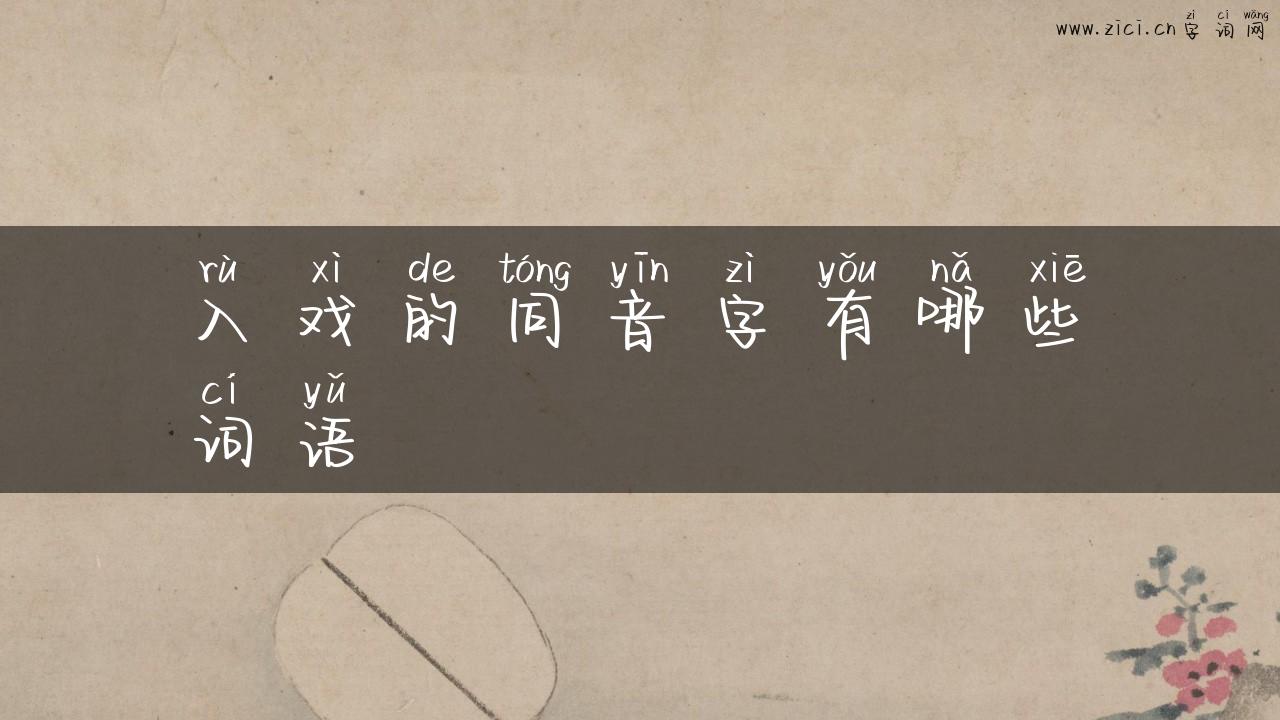 zì cí wǎng
www.zici.cn字词网
rù xì de tóng yīn zì yǒu nǎ xiē
入戏的同音字有哪些
cí yǔ
词语